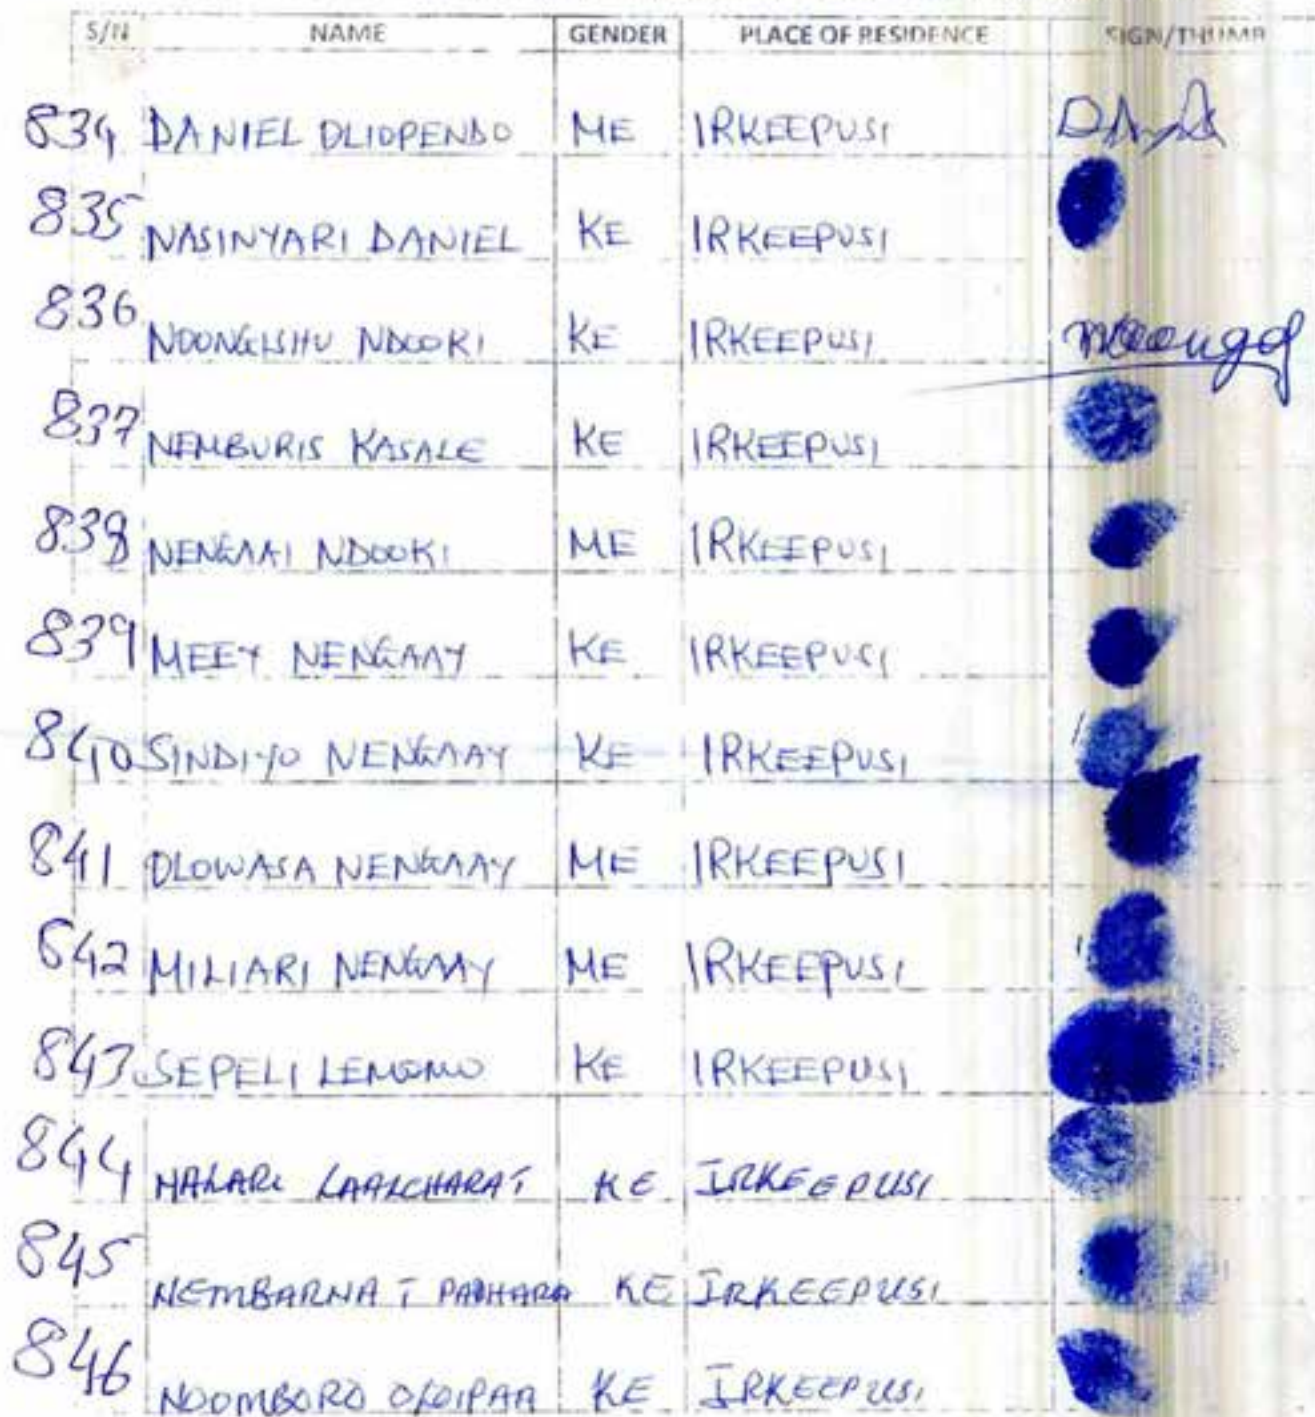 S/N NAME GENDER PLACE OF RESIDENCE SIGN/THUMB
834 DANIEL OLIOPENDO ME IRKEEPUSI
835 NASINYARI DANIEL KE IRKEEPUSI
836 NOONGISHU NDOOKI KE IRKEEPUSI
837 NEMBURIS KASALE KE IRKEEPUSI
838 NENGAAI NDOOKI ME IRKEEPUSI
839 MEEY NENGAAY KE IRKEEPUSI
840 SINDIYO NENGAAY KE IRKEEPUSI
841 OLOWASA NENGAAY ME IRKEEPUSI
842 MILIARI NENGAAY ME IRKEEPUSI
843 SEPELI KE IRKEEPUSI
844 KE IRKEEPUSI
845 KE IRKEEPUSI
846 NOOMBORO OLOIPAA KE IRKEEPUSI